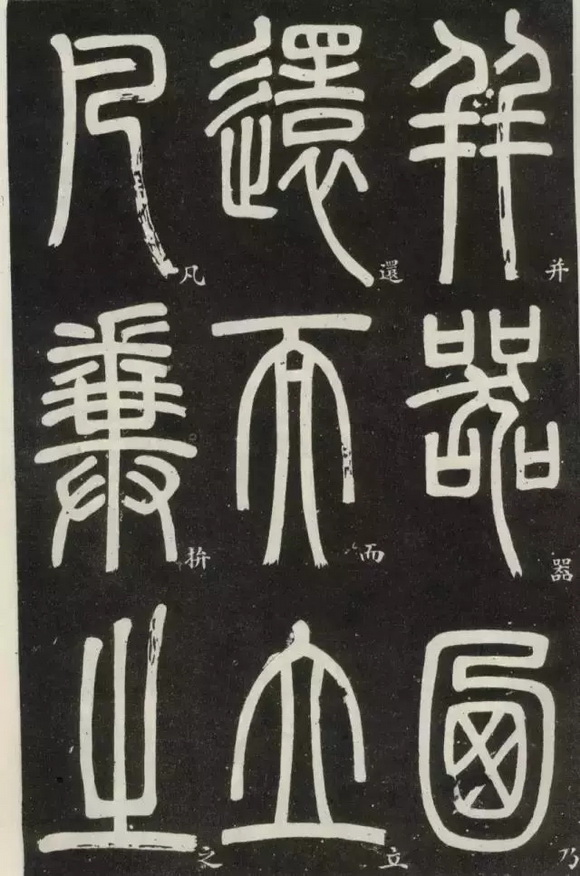 并器乃
還而立
凡栟之